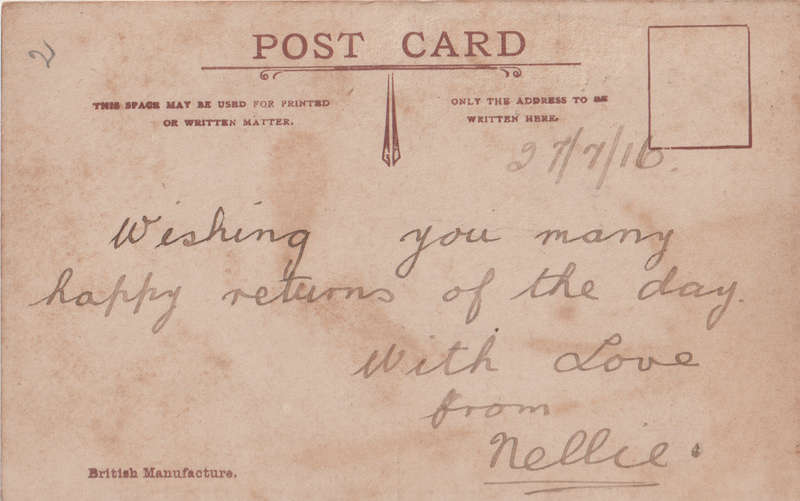 2
POST CARD
THIS SPACE MAY BE USED FOR PRINTED
OR WRITTEN MATTER.
ONLY THE ADDRESS TO BE
WRITTEN HERE.
27/7/16.
Wishing you many
happy returns of the day.
With Love
from
Nellie.
British Manufacture.